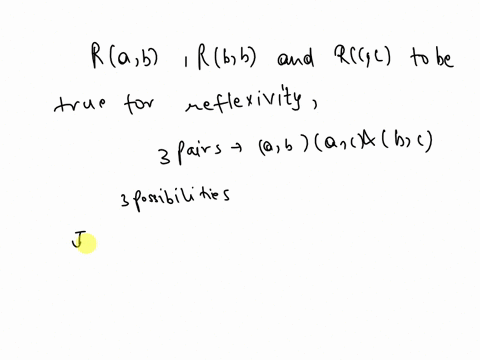 R(a,b) , R(b,b) and R(c,c) to be
true for reflexivity,
3 pairs → (a,b) (a,c) & (b,c)
3 possibilities
J